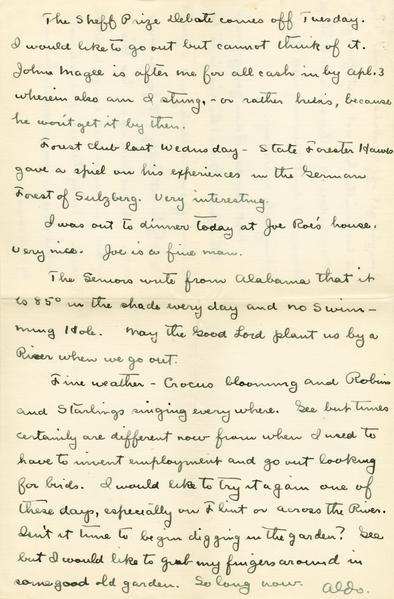 The Sheff Prize Debate comes off Tuesday.
I would like to go out but cannot think of it.
Johns Magee is after me for all cash in by Apl. 3
wherein also am I stung, - or rather he is, because
he won't get it by then.
Forest Club last Wednusday - State Forester Hawes
gave a spiel on his experiences in the German
Forest of Sulzberg. Very interesting.
I was out to dinner today at Joe Roe's house.
Very nice. Joe is a fine man.
The Seniors write from Alabama that it
is 85° in the shade every day and no Swim-
ming Hole. May the Good Lord plant us by a
River when we go out.
Fine weather - Crocus blooming and Robins
and Starlings singing everywhere. Gee but times
certainly are different now from when I used to
have to invent employment and go out looking
for birds. I would like to try it again one of
these days, especially on Flint or across the River.
Isn't it time to begin digging in the garden? Gee
but I would like to grab my fingers around in
some good old garden. So long now.
Aldo.